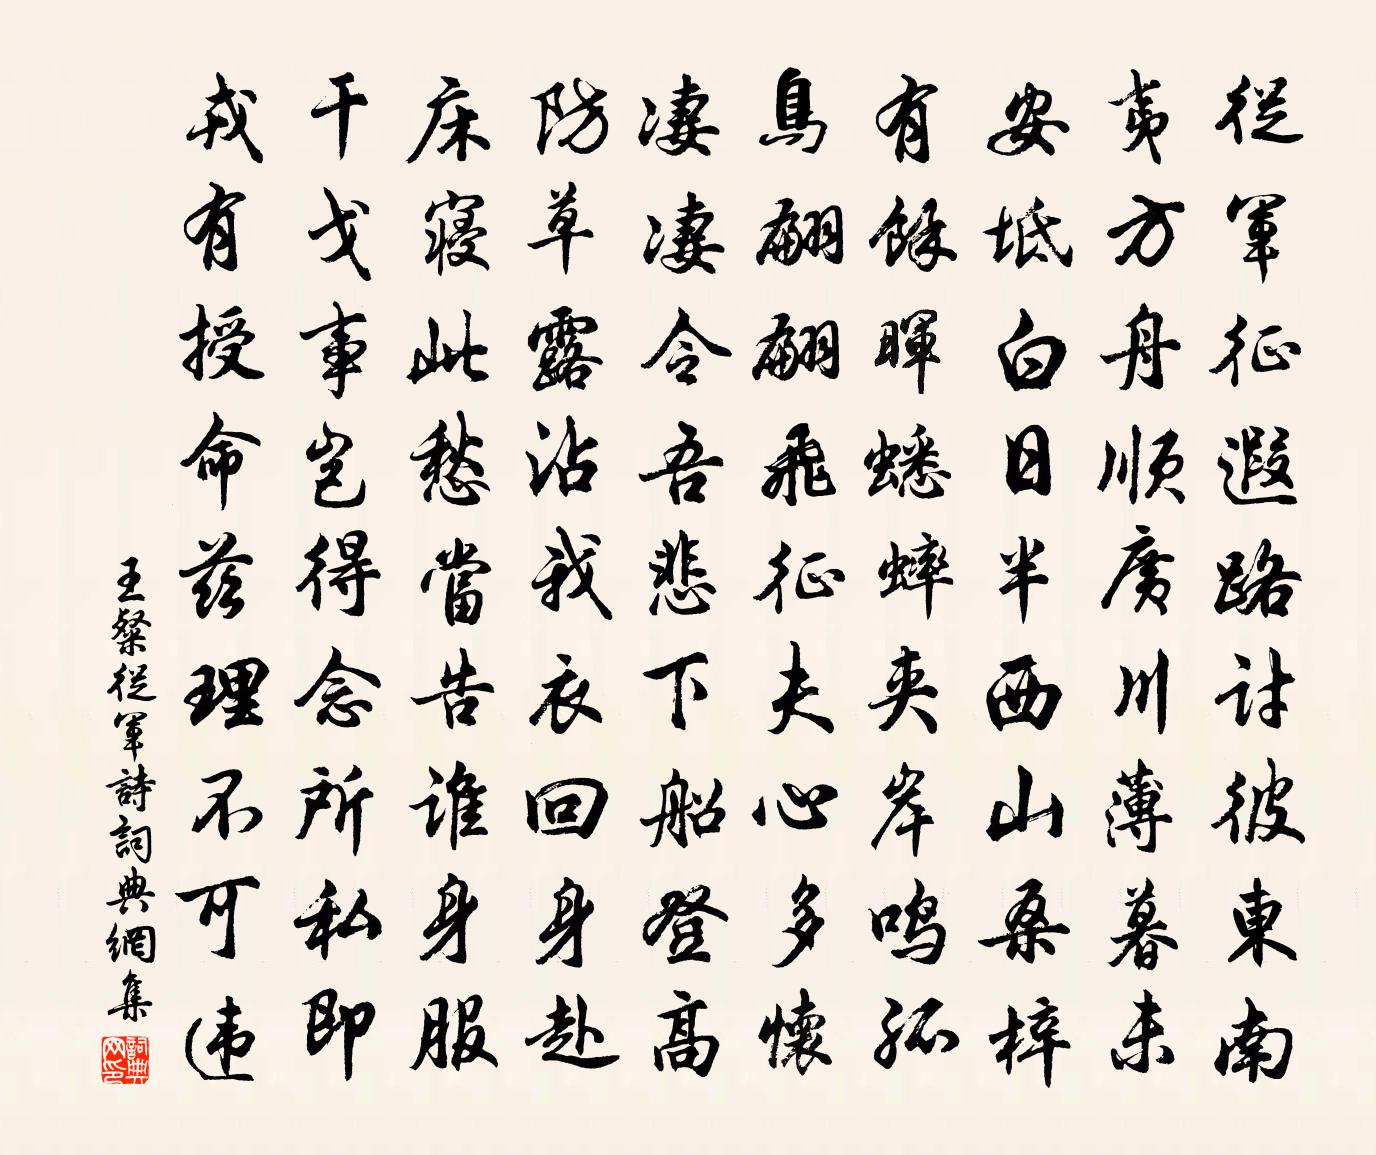 從軍征遐路討彼東南
夷方舟順廣川薄暮未
安坻白日半西山桑梓
有餘暉蟋蟀夾岸鳴孤
鳥翩翩飛征夫心多懷
凄凄令吾悲下船登高
防草露沾我衣回身赴
床寢此愁當告誰身服
干戈事豈得念所私即
戎有授命茲理不可違
王粲從軍詩詞典網集
詞典网印